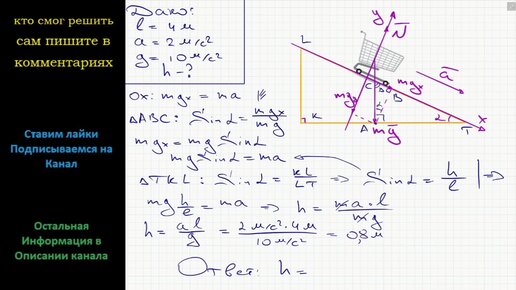 кто смог решить
сам пишите в
комментариях
Ставим лайки
Подписываемся на
Канал
Остальная
Информация в
Описании канала
Дано:
l = 4 м
a = 2 м/с²
g = 10 м/с²
h - ?
OX: mgx = ma
ΔABC: Sinα = mgx/mg
mgx = mg Sinα
mg Sinα = ma
ΔTKL: Sinα = KL/LT ⇒ Sinα = h/l | ⇒
mg h/l = ma ⇒ h = ma·l/mg
h = al/g = 2 м/с²·4 м/10 м/с² = 0,8 м
Ответ: h =
y
N
L
mgx
C
B
a
mgy
α
K
A
mg
T
x